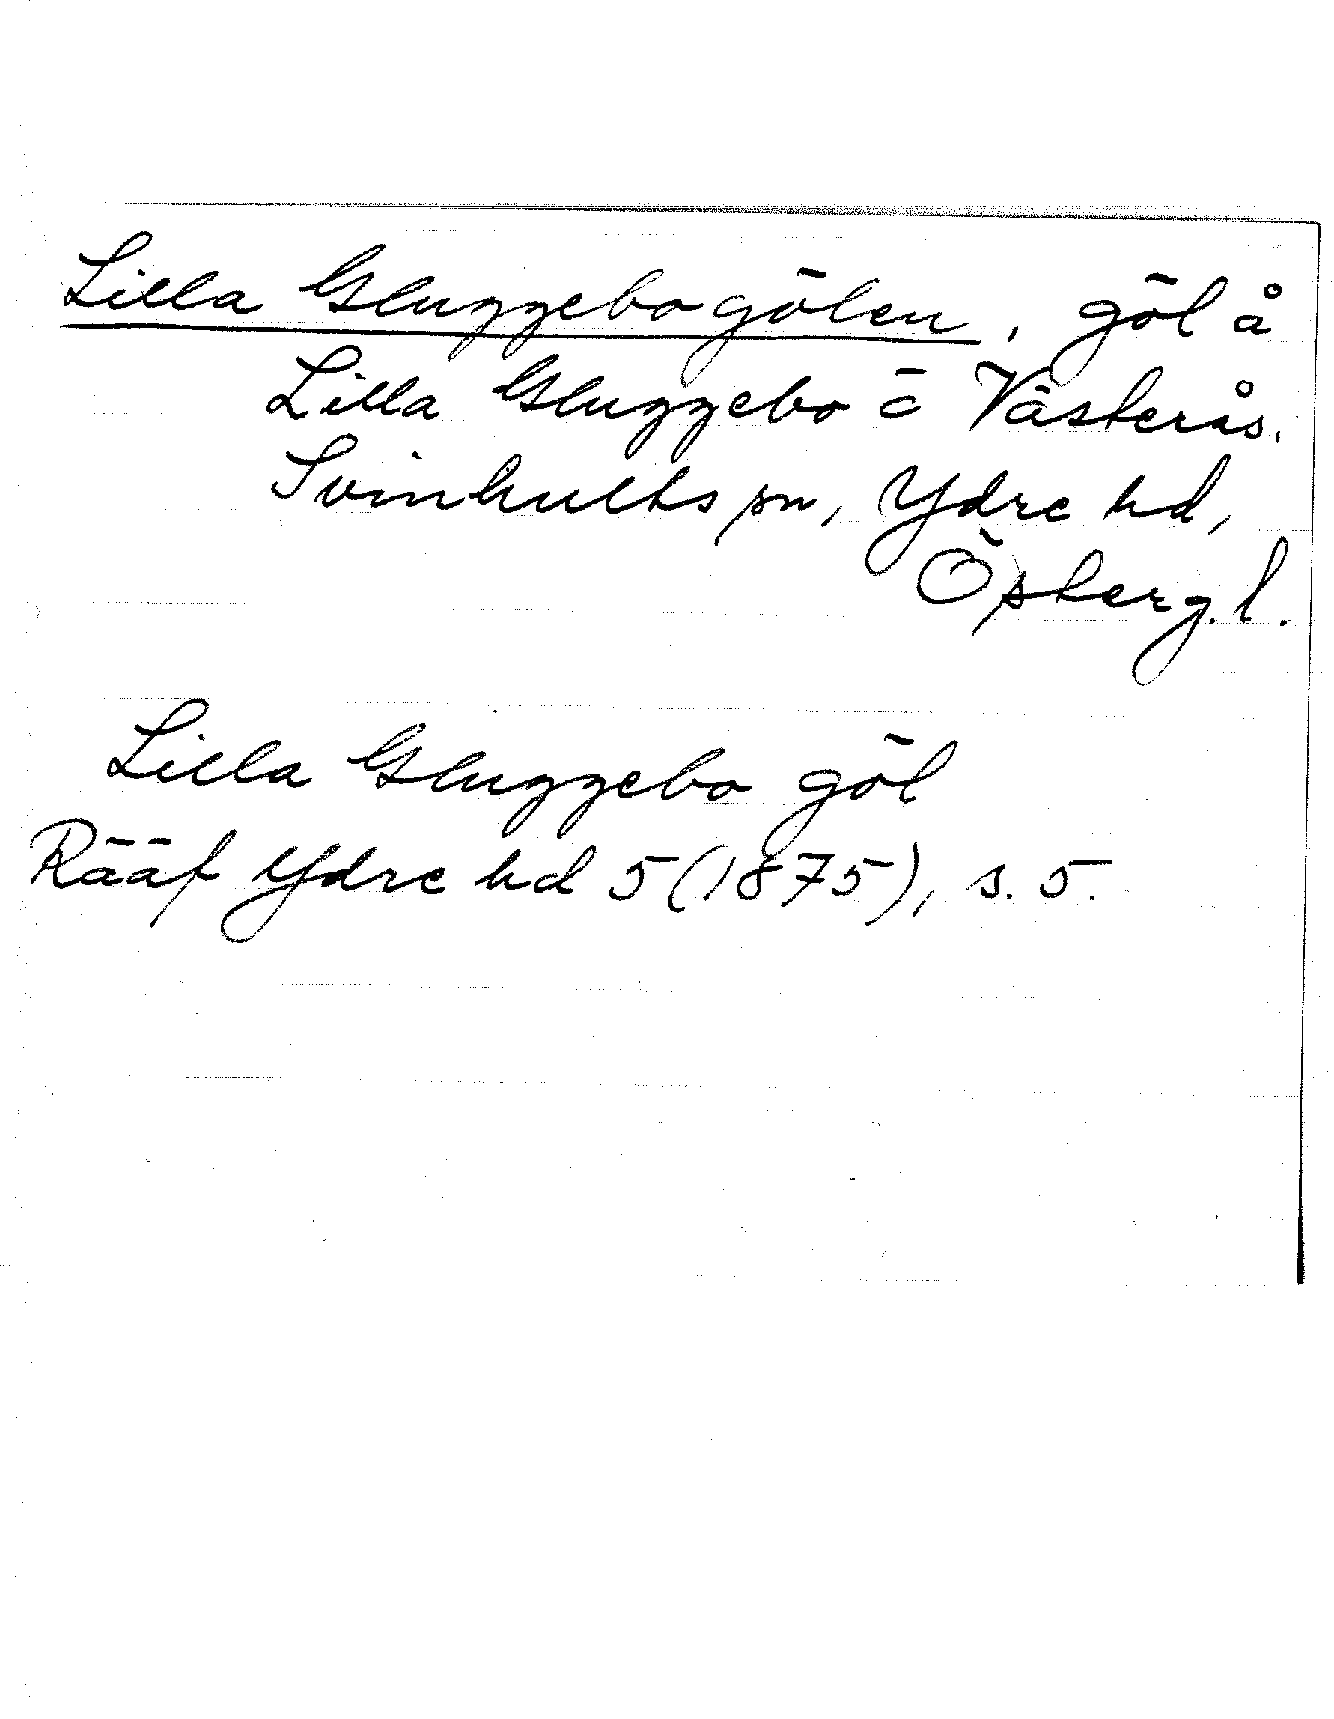 Lilla Gluggebogölen, göl å
Lilla Gluggebo o Västerås.
Svinhults sn, Ydre hd,
Österg. l.
Lilla Gluggebo göl
Rääf Ydre hd 5 (1875), s. 5.